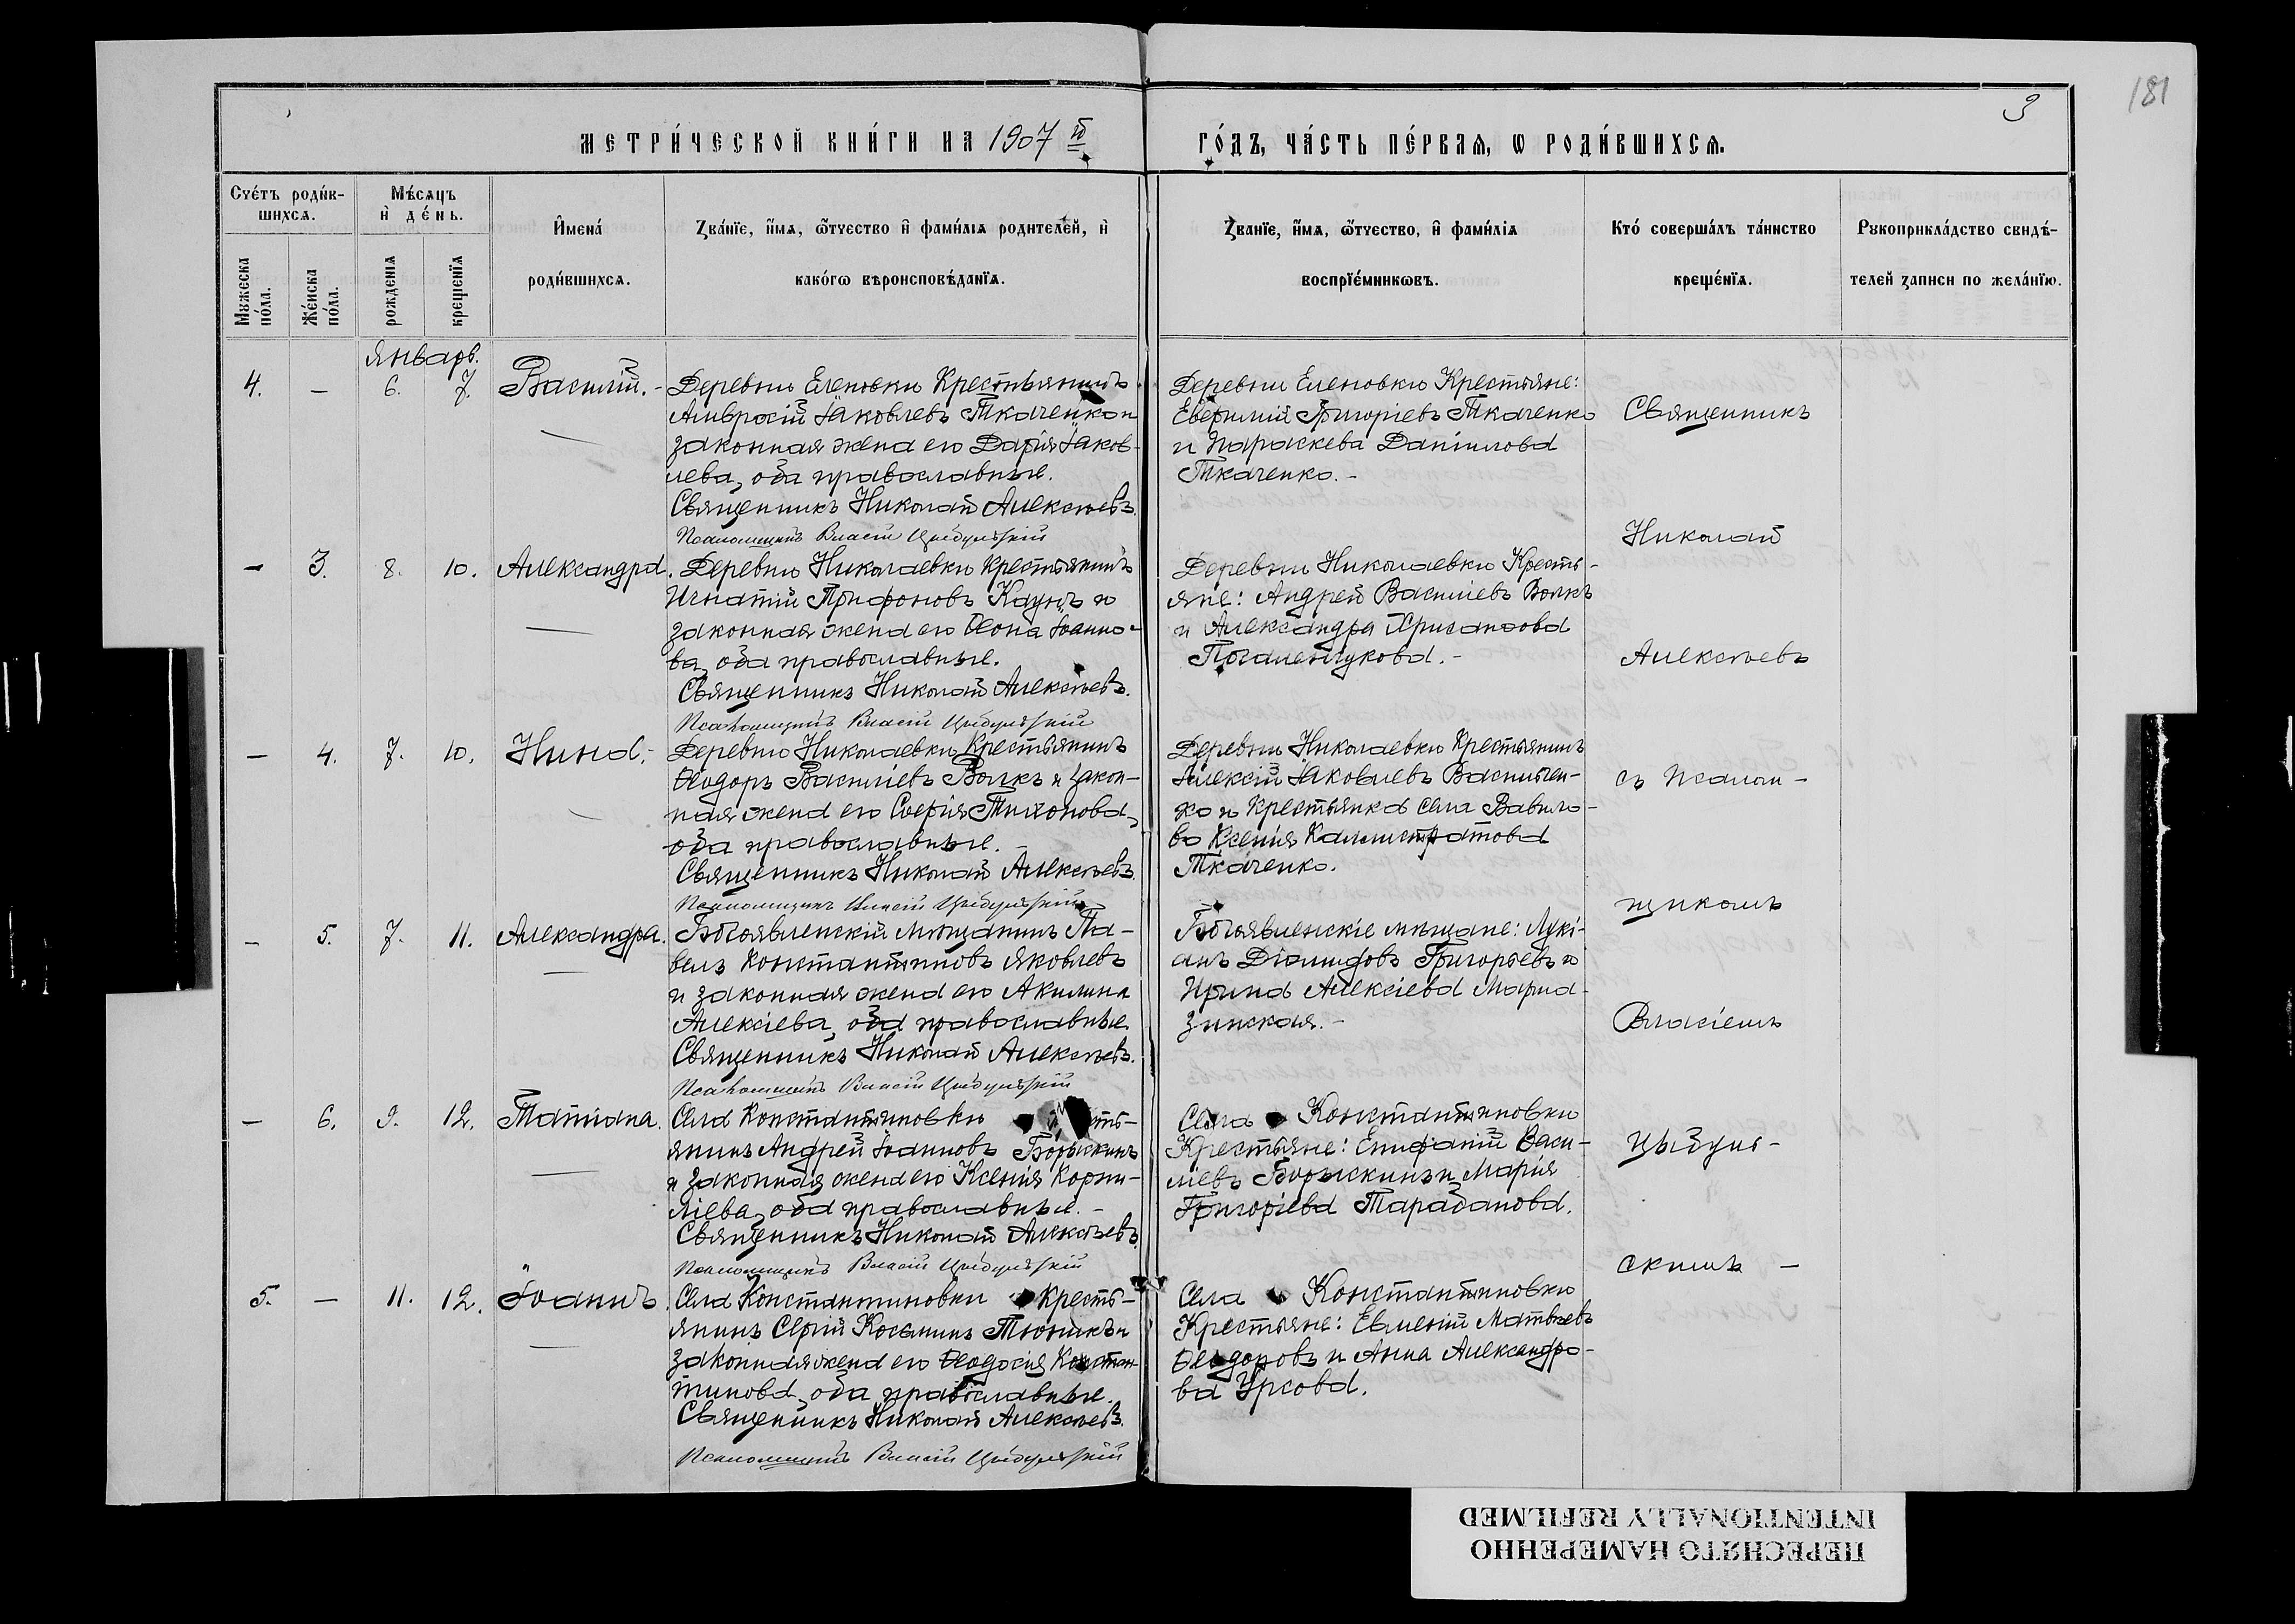 181
3
МЕТРИ́ЧЕСКОЙ КНИ́ГИ НА 1907 й
ГО́ДЪ, ЧА́СТЬ ПЕ́РВАѦ, Ѡ РОДИ́ВШИХСѦ.
Счéтъ роди́в-
шихсѧ.
Мужеска по́ла.
Же́нска по́ла.
Мѣ́сѧцъ
и҆ де́нь.
рожденїѧ
крещенїѧ
И҆мена́
роди́вшихсѧ.
Зва́нїе, и҆́мѧ, ѻ҆́тчество и҆ фами́лїѧ родителе́й, и҆
како́гѡ вѣроисповѣ́данїѧ.
Зва́нїе, и҆́мѧ, ѻ҆́тчество, и҆ фами́лїѧ
воспрїе́мникѡвъ.
Кто́ соверша́лъ та́инство
креще́нїѧ.
Рукоприкла́дство свидѣ́-
телей записи по жела́нїю.
Январь.
4. — 6. 7. Василій. -
Деревни Еленовки Крестьянинъ
Амвросій Іаковлевъ Ткаченко и
законная жена его Дарія Іаков-
лева, оба православные.
Священникъ Николай Алексѣевъ.
Псаломщикъ Власій Цыбульскій
Деревни Еленовки Крестьяне:
Евфимій Григоріевъ Ткаченко
и Параскева Даніилова
Ткаченко. -
— 3. 8. 10. Александра.
Деревни Николаевки Крестьянинъ
Игнатій Трифоновъ Кауль и
законная жена его Ѳеона Іоанно-
ва, оба православные.
Священникъ Николай Алексѣевъ.
Псаломщикъ Власій Цыбульскій
Деревни Николаевки Кресть-
яне: Андрей Василіевъ Волкъ
и Александра Хрисанѳова
— 4. 7. 10. Нина. -
Деревни Николаевки Крестьянинъ
Ѳеодоръ Василіевъ Волкъ и закон-
ная жена его Софія Тихонова,
оба православные. -
Священникъ Николай Алексѣевъ.
Псаломщикъ Власій Цыбульскій
Деревни Николаевки Крестьянинъ
Алексій Іаковлевъ Василен-
ко и Крестьянка села Вавило-
во Ксенія Каллистратова
Ткаченко.
— 5. 7. 11. Александра.
Богоявленскій мѣщанинъ Па-
велъ Константиновъ Яковлевъ
и законная жена его Акилина
Алексіева, оба православные.
Священникъ Николай Алексѣевъ.
Псаломщикъ Власій Цыбульскій
Богоявленскіе мѣщане: Лукі-
анъ Діомидовъ Григорьевъ и
Ирина Алексіева Марга-
зинская. -
— 6. 9. 12. Татіана.
Села Константиновки сть-
янинъ Андрей Іоанновъ Борыскинъ
и законная жена его Ксенія Корни-
ліева, оба православные. -
Священникъ Николай Алексѣевъ.
Псаломщикъ Власій Цыбульскій
Села Константиновки
Крестьяне: Епифаній Васи-
ліевъ Борыскинъ и Марія
Григоріева Тарабанова.
5. — 11. 12. Іоаннъ.
Села Константиновки Кресть-
янинъ Сергій Косьминъ Тюникъ и
законная жена его Ѳеодосія Констан-
тинова, оба православные.
Священникъ Николай Алексѣевъ.
Псаломщикъ Власій Цыбульскій
Села Константиновки
Крестьяне: Евменій Матѳѣевъ
Ѳеодоровъ и Анна Александро-
ва Урсова.
Священникъ
Николай
Алексѣевъ
съ Псалом-
щикомъ
Власіемъ
Цыбуль-
скимъ —
ПЕРЕСНЯТО НАМЕРЕННО
INTENTIONALLY REFILMED